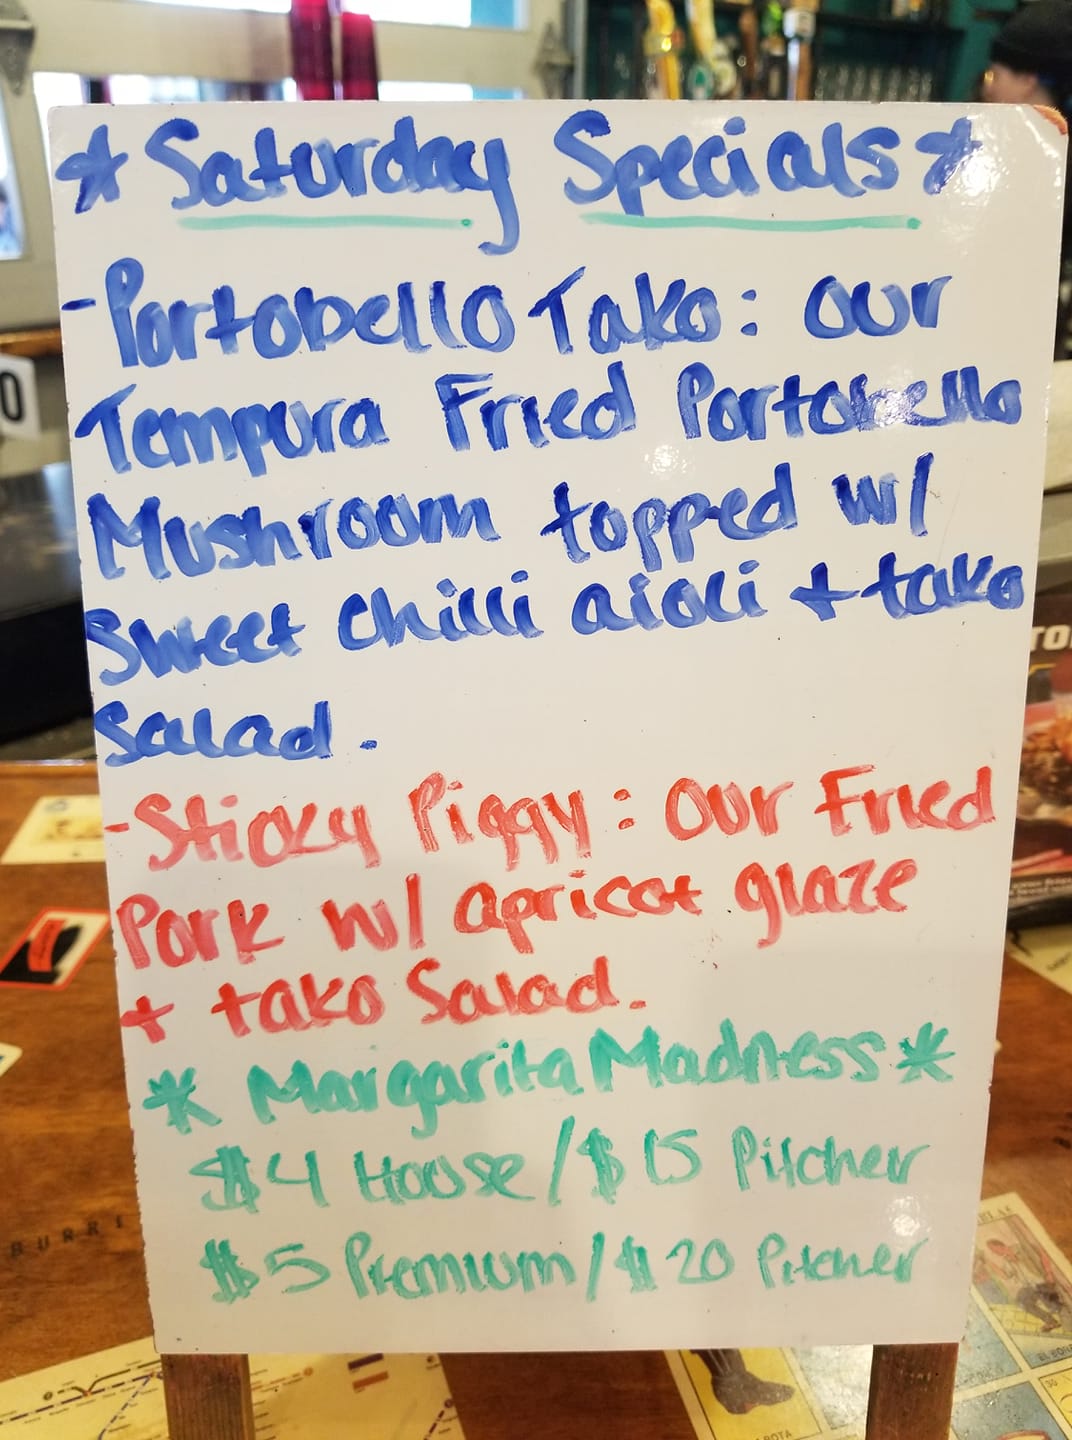 * Saturday Specials *
-Portobello Tako: Our
Tempura Fried Portobello
Mushroom topped w/
Sweet chilli aioli + tako
Salad.
-Sticky Piggy: Our Fried
Pork w/ apricot glaze
+ tako Salad.
* Margarita Madness *
$4 House/$15 Pitcher
$5 Premium/$20 Pitcher
BURRI